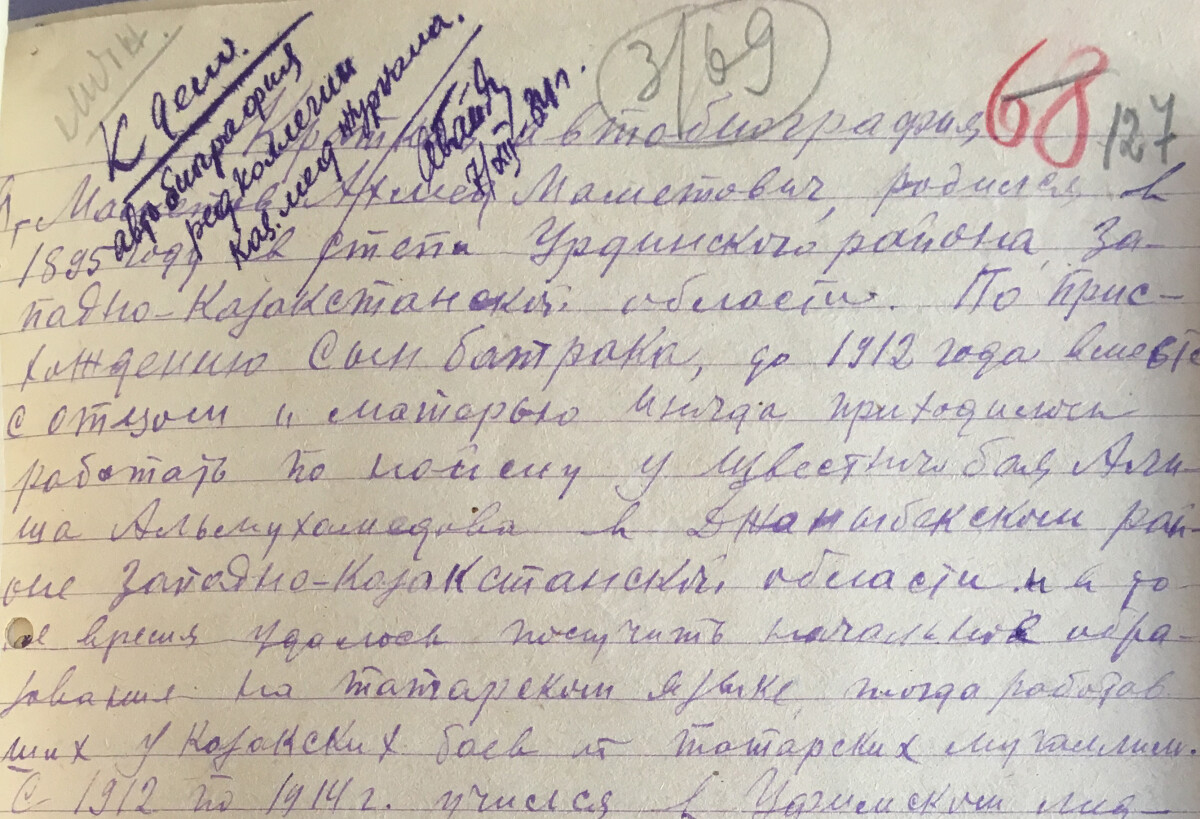 личн.
К делу.
автобиография
редколлегии
Каз. мед журнала.
7/XII-34г.
3/69
68
127
Краткая автобиография
Я, Маметов Ахмед Маметович, родился в
1895 году в степи Урдинского района За-
падно-Казакстанской области. По прис-
хождению Сын батрака, до 1912 года вместе
с отцом и матерью иногда приходилось
работать по найму у известного бая Алчи-
ша Альмухамедова в Джаныбекском рай-
оне Западно-Казакстанской области и в то
же время удалось получить начальное обра-
зование на татарском языке, тогда работав
ших у казакских баев от татарских мугаллим.
С 1912 по 1914 г. учился в Уфимском мед-